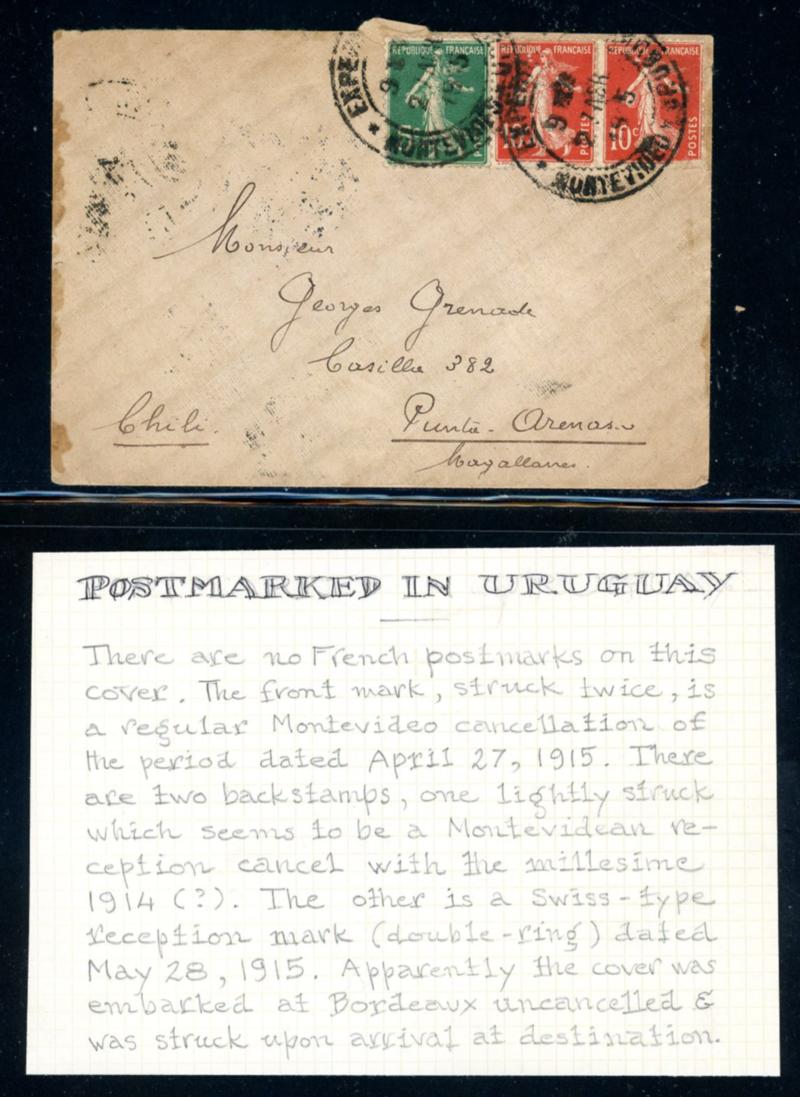 REPUBLIQUE FRANÇAISE REPUBLIQUE FRANÇAISE REPUBLIQUE FRANÇAISE
10c POSTES
MONTEVIDEO MONTEVIDEO
Monsieur
Georges Grenade
Casilla 382
Chili. Punta-Arenas
Magallanes.
POSTMARKED IN URUGUAY
There are no French postmarks on this
cover. The front mark, struck twice, is
a regular Montevideo cancellation of
the period dated April 27, 1915. There
are two backstamps, one lightly struck
which seems to be a Montevidean re-
ception cancel with the millesime
1914 (?). The other is a Swiss-type
reception mark (double-ring) dated
May 28, 1915. Apparently the cover was
embarked at Bordeaux uncancelled &
was struck upon arrival at destination.